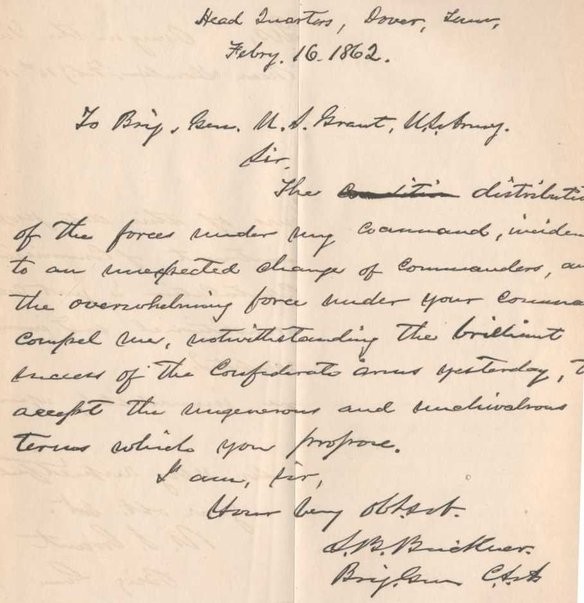 Head Quarters, Dover, Tenn,
Febry. 16. 1862.
To Brig. Gen. U. S. Grant, U.S. Army.
Sir,
The condition distributio
of the forces under my command, inciden
to an unexpected change of commanders, an
the overwhelming force under your comman
compel me, notwithstanding the brilliant
success of the Confederate arms yesterday, t
accept the ungenerous and unchivalrous
terms which you propose.
I am, sir,
Your very obt. svt.
S. B. Buckner.
Brig. Gen C.S.A